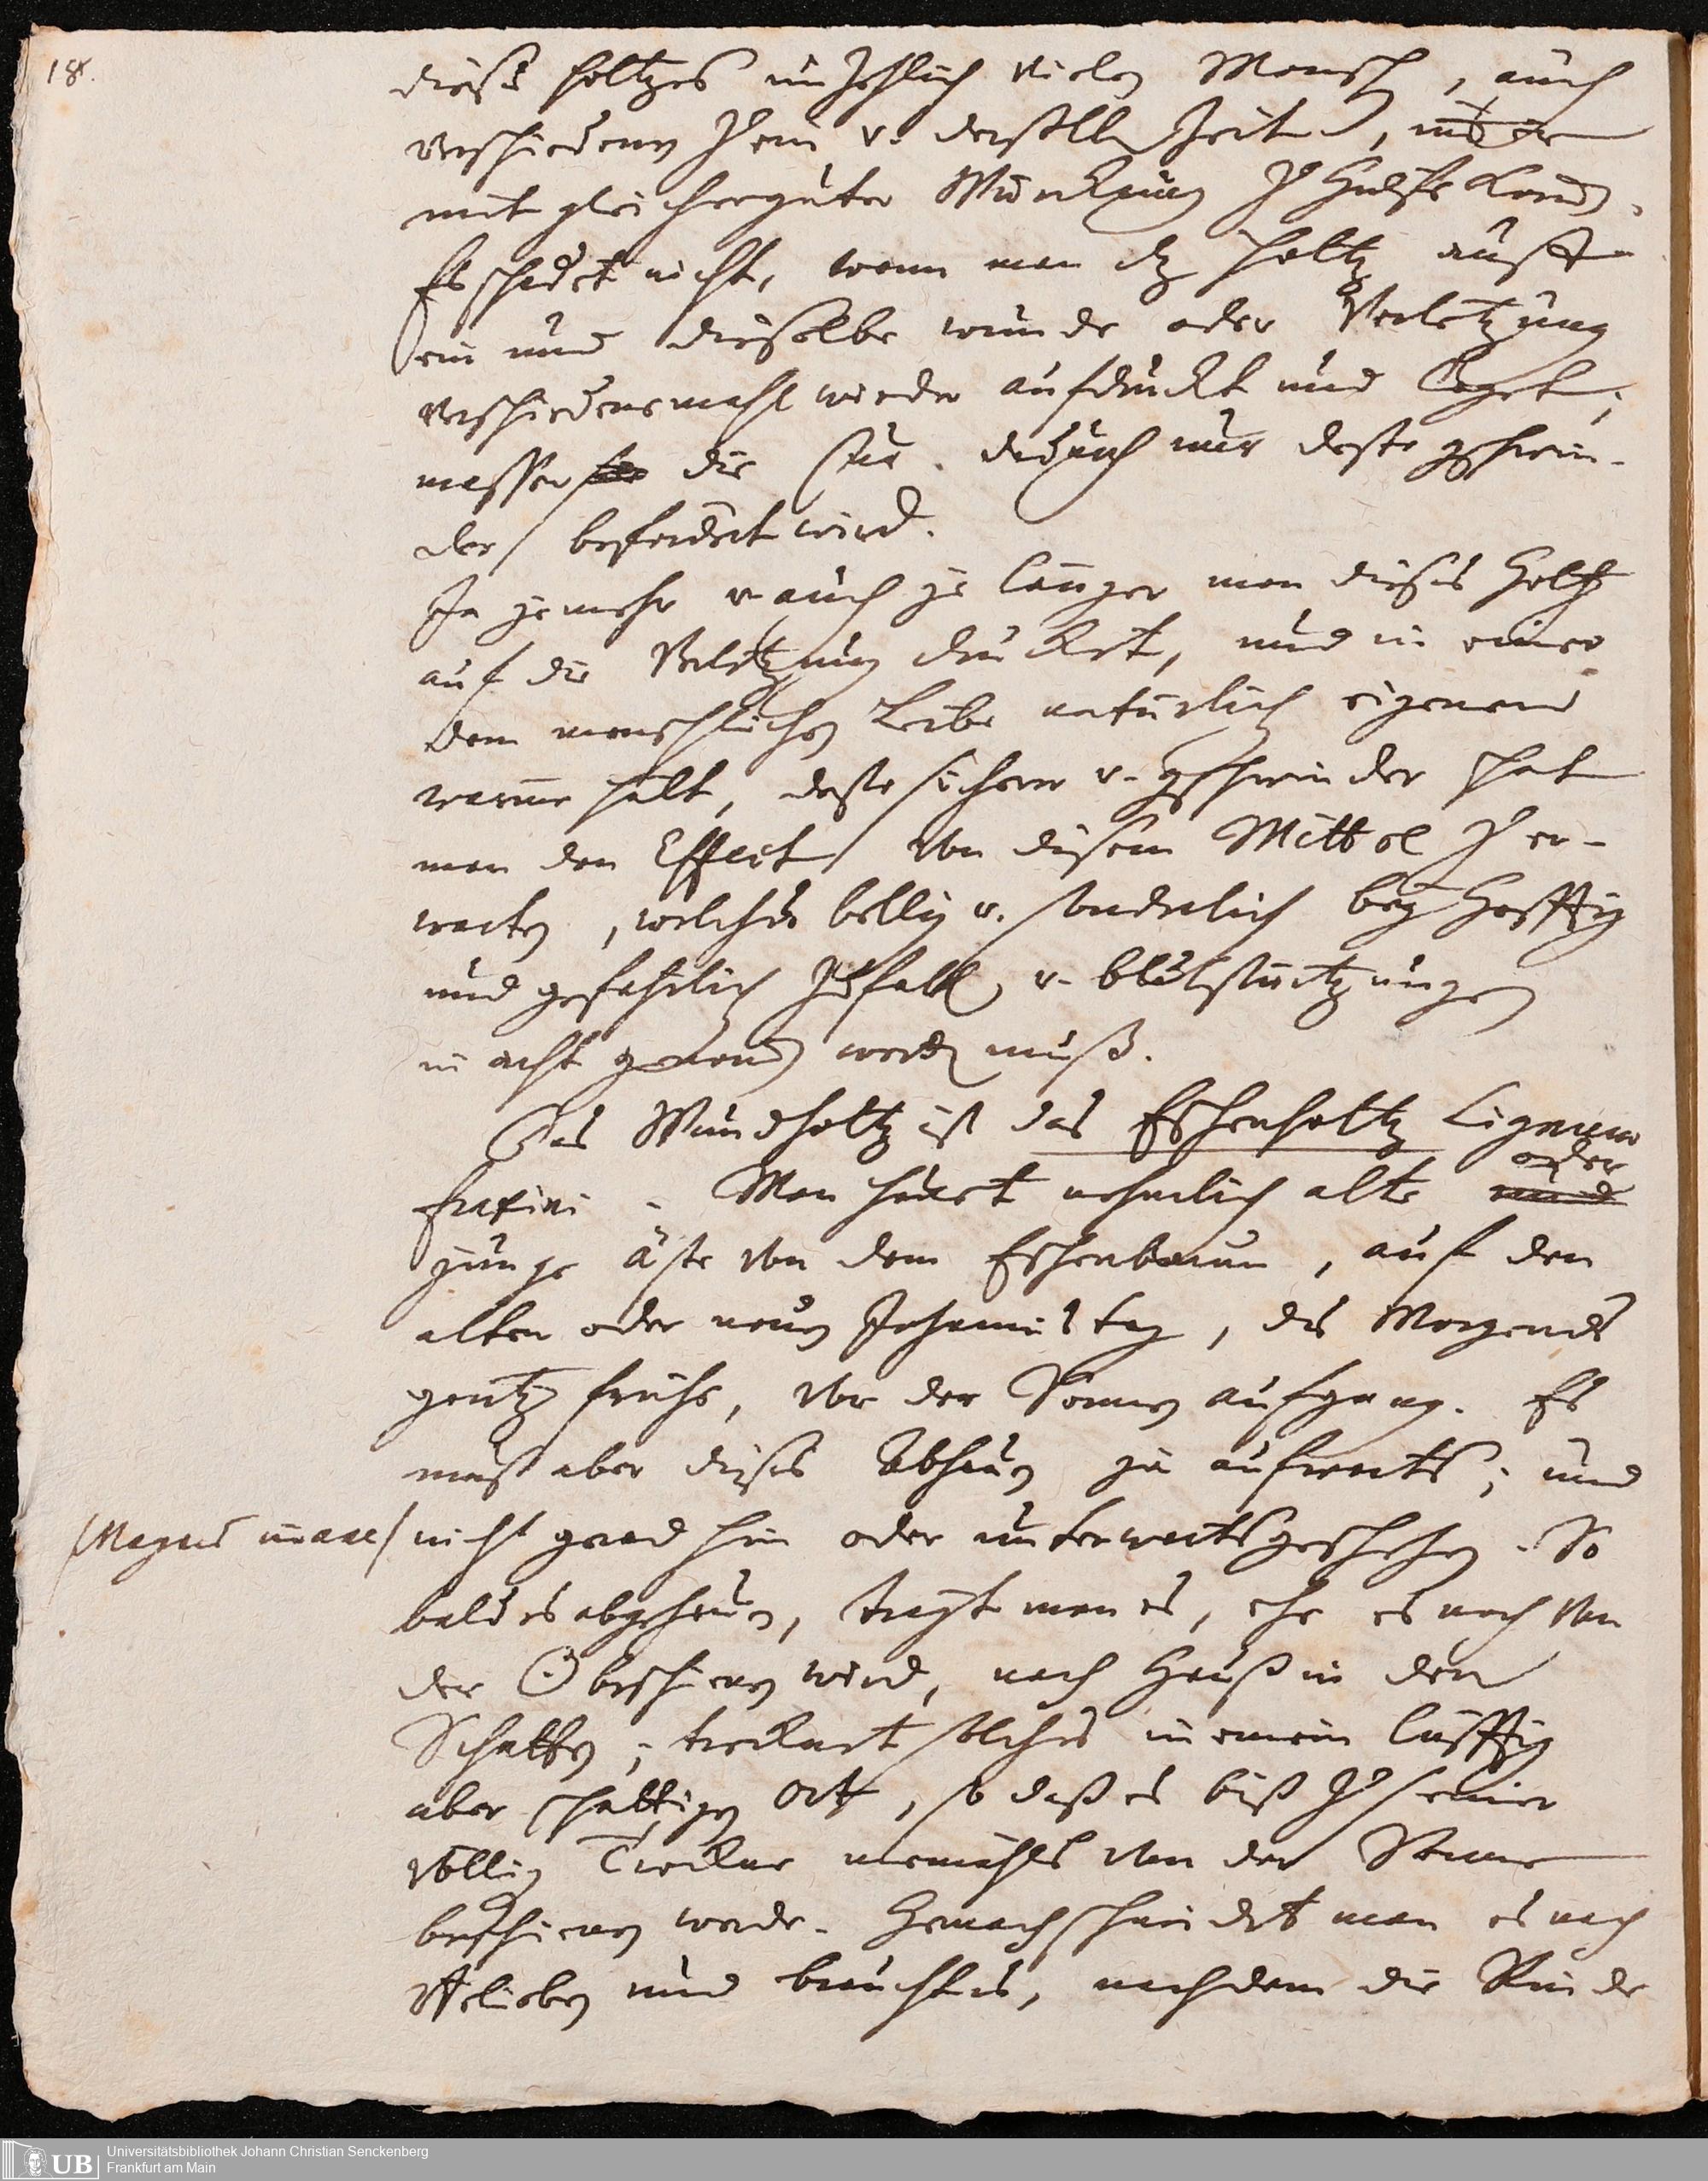 18.
dieses holtzes unzehlich vielen Mensch, auch
verschiedenen zu ein v. derselben Zeit,
mit gleicher guter Würckung zu Hülffe kom̄en.
Es schadet nicht, wenn man dz holtz auff
ein und dieselbe wunde oder Verletzung
verschiedenemahl wieder aufdruckt und leget;
massen die Cur dadurch nur desto geschwin-
der befördert wird.
Je jemehr v. auch je länger man dieses Holtz
auf die Verletzung drucket, und in einer
dem menschlichen Leibe natürlich eigenend
wärme hält, desto sicherer v. geschwinder hat
man den Effect von diesem Mittel zu er-
warten, welches billig v. sonderlich bey hefftig
und gefährlich Zufällen v. blutstürtzungen
in acht genom̄en werden muß.
Das Wundholtz ist das Eschenholtz Lignum
fraxini. Man hauet nehmlich alte oder
junge äste von dem Eschenbaum, auf den
alten oder neuen Johannistag, des Morgends
gantz frühe, vor der Sonnen aufgang. Es
muß aber dieses Abhauen ja aufwerts; und
/Magus/ nicht grad hin oder unterwerts geschehen. So
bald es abgehauen, trägt man es, ehe es noch von
der ☉ beschienen wird, nach Hauß in den
Schatten; trocknet solches in einem lüfftig
aber schattigen Ort, so daß es biß zu seiner
völlig Trockne niemahls von der Sonne
beschienen werde. Hernach schneidet man es nach
Belieben und braucht es, nachdem die Rinde
Universitätsbibliothek Johann Christian Senckenberg
UB Frankfurt am Main